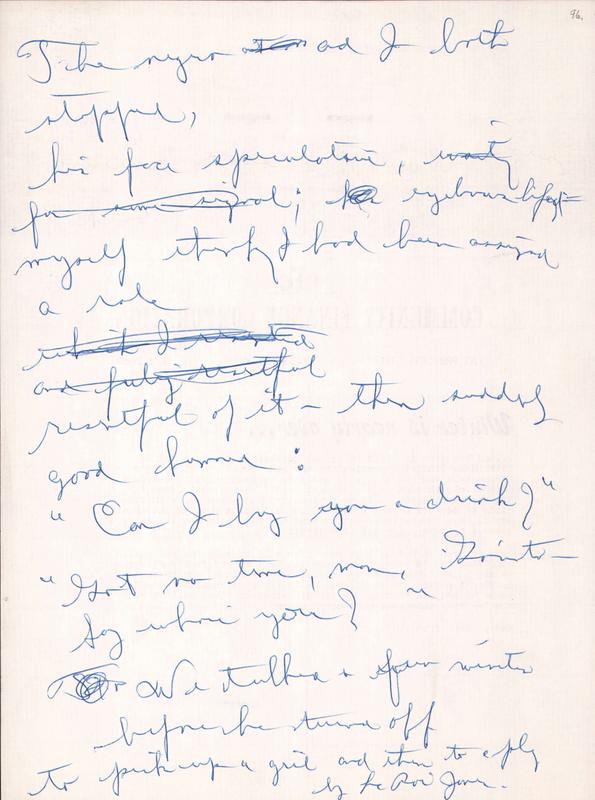 96.
The negro and I both
stopped,
his face speculative, waiting
for some signal; his eyebrows lifted
myself think I had been assigned
a role
which I resented
and fully resentful
resentful of it – then suddenly
good humor :
"Can I buy you a drink?"
"Got no time, man, Going to –
Say where you?"
We talked a few minutes
before he turned off
to pick up a girl and then to a play
by Le Roi Jones.